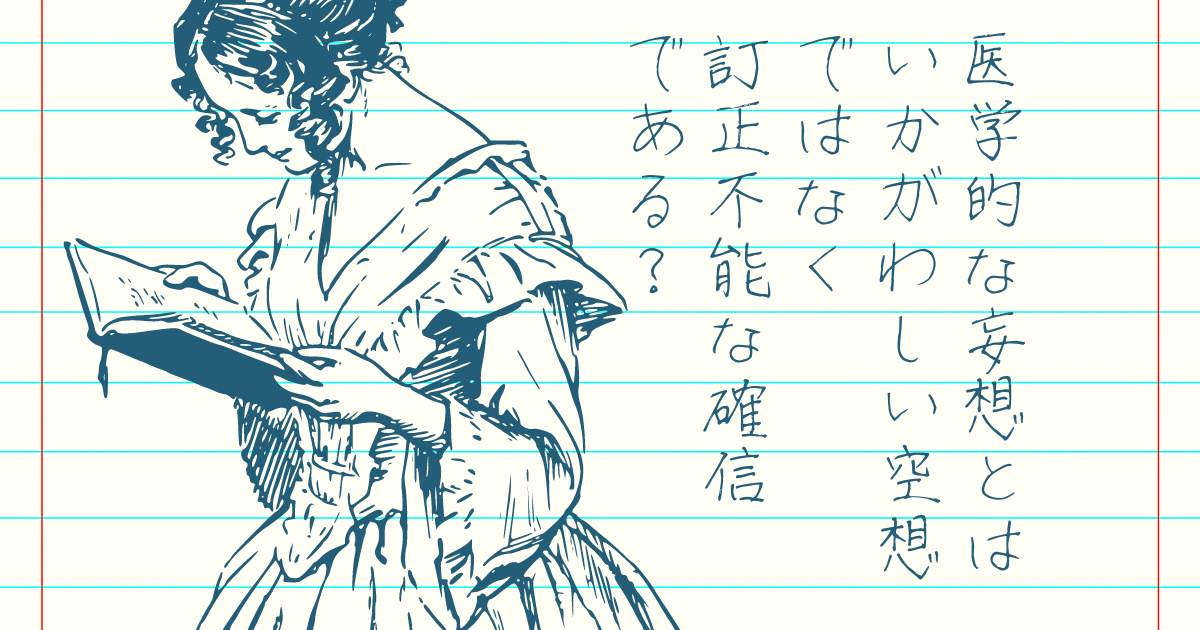 医学的な妄想とは
いかがわしい空想
ではなく
訂正不能な確信
である？